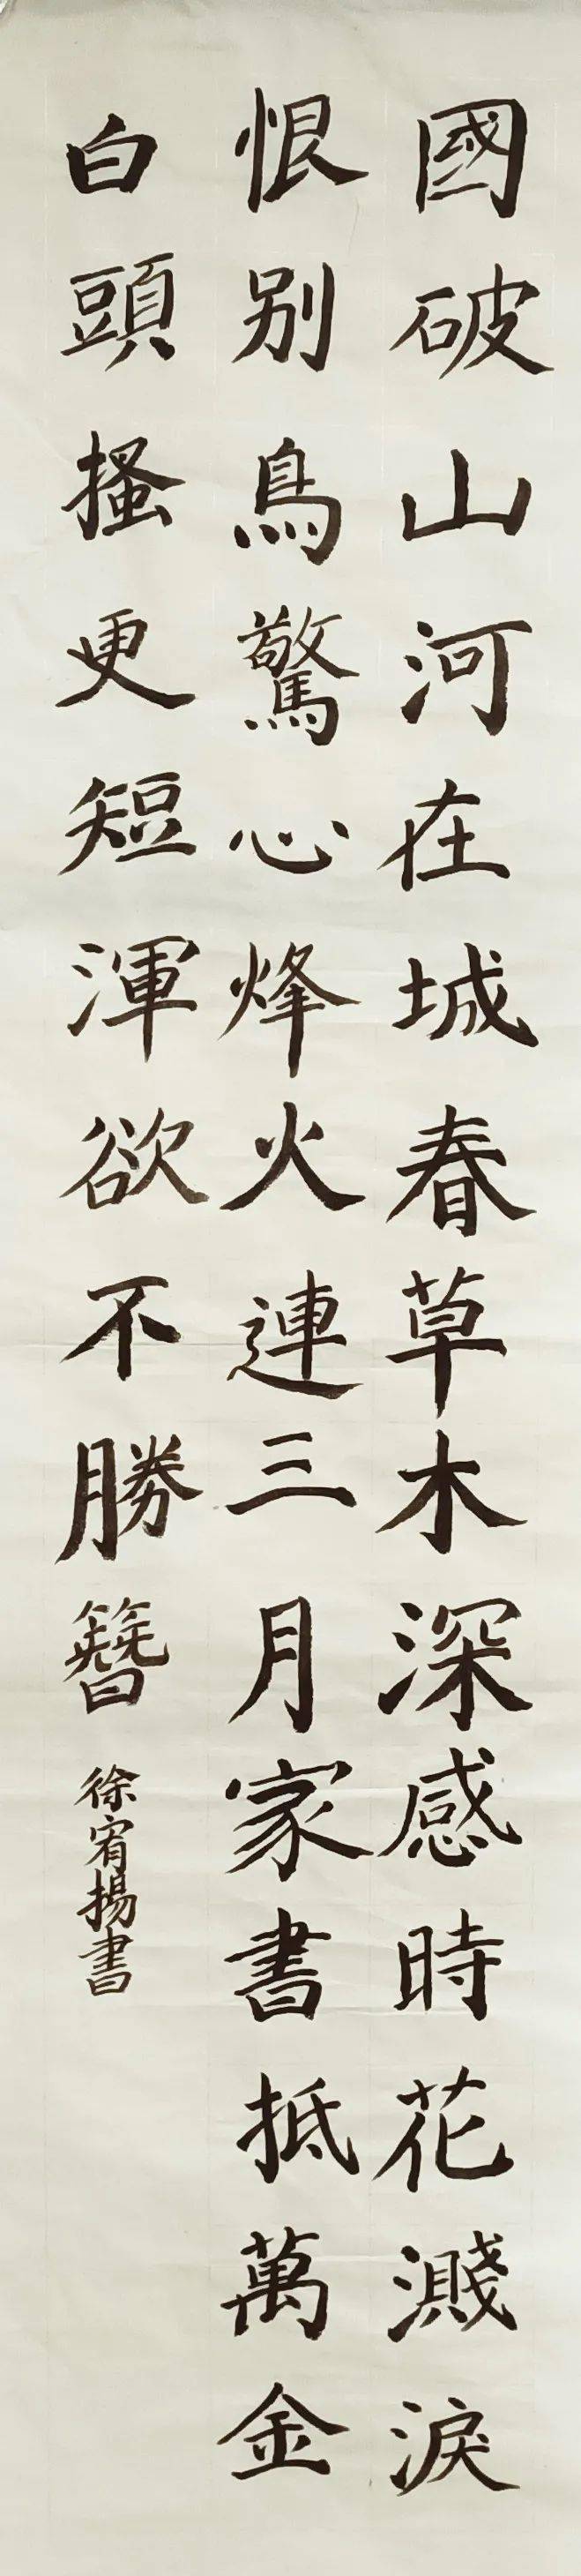 國破山河在城春草木深感時花濺淚
恨别鳥驚心烽火連三月家書抵萬金
白頭搔更短渾欲不勝簪
徐宥揚書